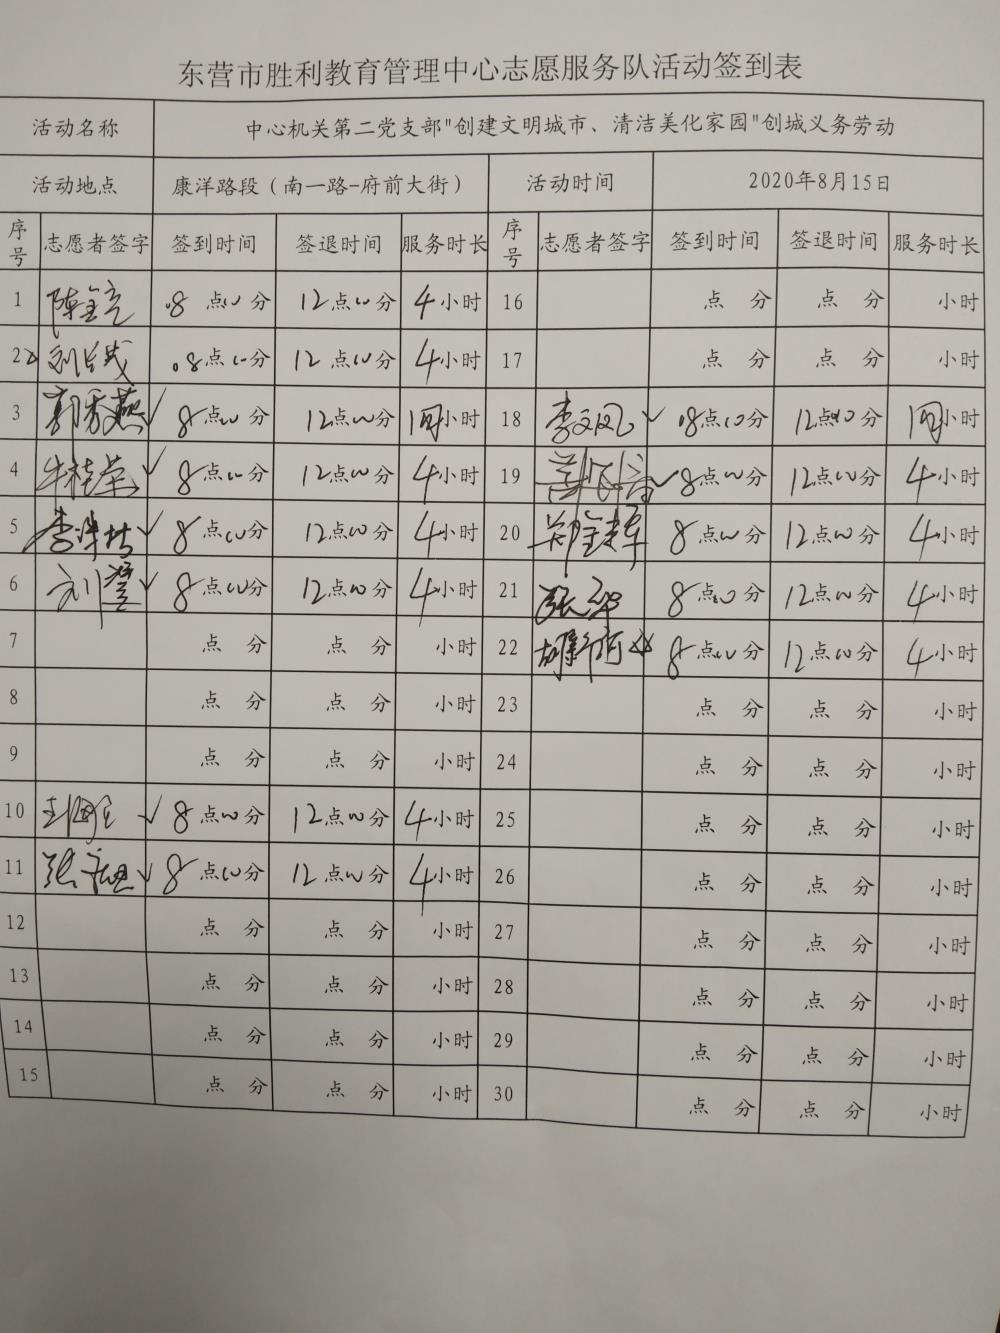 东营市胜利教育管理中心志愿服务队活动签到表
活动名称 中心机关第二党支部"创建文明城市、清洁美化家园"创城义务劳动
活动地点 康洋路段（南一路-府前大街） 活动时间 2020年8月15日
序号 志愿者签字 签到时间 签退时间 服务时长 序号 志愿者签字 签到时间 签退时间 服务时长
1 8点00分 12点00分 4小时 16 点 分 点 分 小时
2 8点00分 12点00分 4小时 17 点 分 点 分 小时
3 郭秀燕 8点00分 12点00分 小时 18 李文凤 8点00分 12点00分 小时
4 牛桂荣 8点00分 12点00分 4小时 19 8点00分 12点00分 4小时
5 8点00分 12点00分 4小时 20 8点00分 12点00分 4小时
6 8点00分 12点00分 4小时 21 张华 8点00分 12点00分 4小时
7 点 分 点 分 小时 22 8点00分 12点00分 4小时
8 点 分 点 分 小时 23 点 分 点 分 小时
9 点 分 点 分 小时 24 点 分 点 分 小时
10 8点00分 12点00分 4小时 25 点 分 点 分 小时
11 8点00分 12点00分 4小时 26 点 分 点 分 小时
12 点 分 点 分 小时 27 点 分 点 分 小时
13 点 分 点 分 小时 28 点 分 点 分 小时
14 点 分 点 分 小时 29 点 分 点 分 小时
15 点 分 点 分 小时 30 点 分 点 分 小时